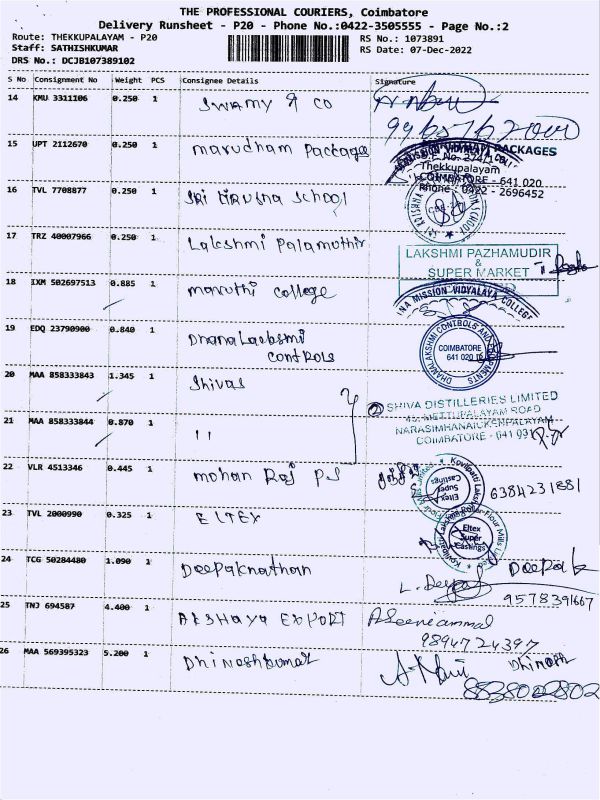 THE PROFESSIONAL COURIERS, Coimbatore
Delivery Runsheet - P20 - Phone No.:0422-3505555 - Page No.:2
Route: THEKKUPALAYAM - P20
RS No.: 1073891
Staff: SATHISHKUMAR
RS Date: 07-Dec-2022
DRS No.: DCJB107389102
S No Consignment No Weight PCS Consignee Details Signature
14 KMU 3311106 0.250 1 SWAMY & CO
15 UPT 2112670 0.250 1 marudham Package
PACKAGES
Thekkupalayam
COIMBATORE - 641 020
Phone : 0422 - 2696452
16 TVL 7708877 0.250 1 SRI KIRUSNA SCHOOL
17 TRZ 40007966 0.250 1 Lakshmi Palamuthir
LAKSHMI PAZHAMUDIR
&
SUPER MARKET
18 IXM 502697513 0.885 1 maruthi college
MISSION VIDYALAYA COLLEGE
19 EDQ 23790900 0.840 1 Dhana Lakshmi
controls
DHANALAKSHMI CONTROLS AND
COIMBATORE
641 020
20 MAA 858333843 1.345 1 Shivas
SHIVA DISTILLERIES LIMITED
METTUPALAYAM ROAD
21 MAA 858333844 0.870 1 11
NARASIMHANAICKENPALAYAM
COIMBATORE - 641 031
22 VLR 4513346 0.445 1 mohan Raj PS
6384231881
Eltex
Super
Castings
23 TVL 2000990 0.325 1 ELTEX
Eltex
Super
Castings
24 TCG 50284480 1.090 1 Deepaknathan
L. Deepak Deepak
9578391667
25 TNJ 694587 4.400 1 AKSHAYA EXPORT
A Seeniammal
9894724397
26 MAA 569395323 5.200 1 Dhinashkumar
Dhinash